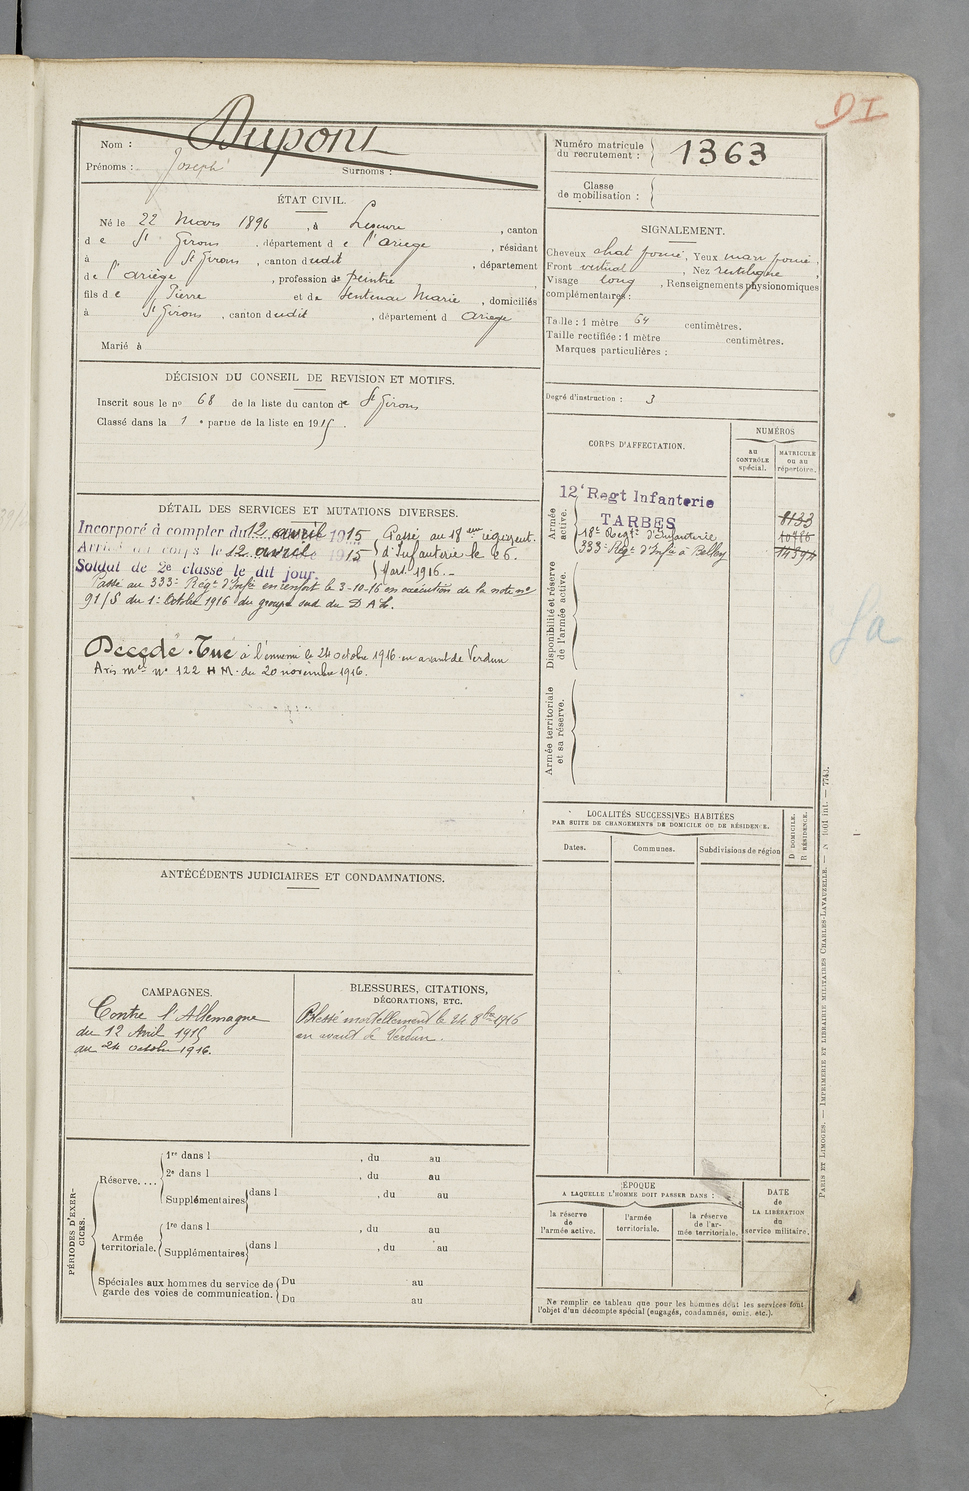 DI
Nom : Dupont
Prénoms : Joseph Surnoms :
Numéro matricule du recrutement : 1363
Classe de mobilisation :
ÉTAT CIVIL.
Né le 22 Mars 1896, à Lescure, canton
de St Girons, département de l'Ariège, résidant
à St Girons, canton dudit, département
de l'ariège, profession de peintre
fils de Pierre et de Sentenac Marie, domiciliés
à St Girons, canton dudit, département d Ariège
Marié à
SIGNALEMENT.
Cheveux chat foncé, Yeux marr foncé,
Front vertical, Nez rectiligne,
Visage long, Renseignements physionomiques
complémentaires :
Taille : 1 mètre 64 centimètres.
Taille rectifiée : 1 mètre centimètres.
Marques particulières :
DÉCISION DU CONSEIL DE REVISION ET MOTIFS.
Inscrit sous le nº 68 de la liste du canton de St Girons
Classé dans la 1 e partie de la liste en 1915.
Degré d'instruction : 3
CORPS D'AFFECTATION.
NUMÉROS
AU CONTRÔLE spécial.
MATRICULE ou au répertoire.
Armée active.
12e Regt Infanterie
TARBES
8133
18e Regt d'Infanterie
333e Régt d'Infie à Belley
Disponibilité et réserve de l'armée active.
Armée territoriale et sa réserve.
DÉTAIL DES SERVICES ET MUTATIONS DIVERSES.
Incorporé à compter du 12 avril 1915
Arrivé au corps le 12 avril 1915
Soldat de 2e classe le dit jour.
Passé au 18eme régiment
d'Infanterie le 26
Mars 1916.-
Passé au 333e Régt d'Infie en renfort le 3-10-16 en exécution de la note nº
91/S du 1er Octobre 1916 du groupe sud du D A L.
Décédé. Tué à l'ennemi le 24 octobre 1916 en avant de Verdun
Avis mel nº 122 HM. du 20 novembre 1916.
Sa
LOCALITÉS SUCCESSIVES HABITÉES
PAR SUITE DE CHANGEMENTS DE DOMICILE OU DE RÉSIDENCE.
Dates.
Communes.
Subdivisions de région
D DOMICILE.
R RÉSIDENCE.
ANTÉCÉDENTS JUDICIAIRES ET CONDAMNATIONS.
CAMPAGNES.
Contre l'Allemagne
du 12 Avril 1915
au 24 octobre 1916.
BLESSURES, CITATIONS,
DÉCORATIONS, ETC.
Blessé mortellement le 24 8bre 1916
en avant de Verdun.
PÉRIODES D'EXERCICES.
Réserve....
1re dans l , du au
2e dans l , du au
Supplémentaires dans l , du au
Armée territoriale.
1re dans l , du au
Supplémentaires dans l , du au
Spéciales aux hommes du service de garde des voies de communication.
Du au
Du au
ÉPOQUE
A LAQUELLE L'HOMME DOIT PASSER DANS :
la réserve de l'armée active.
l'armée territoriale.
la réserve de l'armée territoriale.
DATE de LA LIBÉRATION du service militaire.
Ne remplir ce tableau que pour les hommes dont les services font
l'objet d'un décompte spécial (engagés, condamnés, omis, etc.).
PARIS ET LIMOGES. — IMPRIMERIE ET LIBRAIRIE MILITAIRES CHARLES-LAVAUZELLE. — N° 1001 int. — 7743.